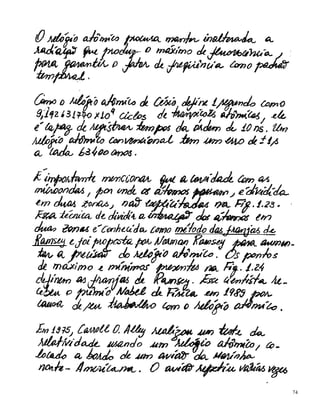 O relógio atômico procura manter inalterada a
radiação que produz o máximo de fluorescência,
para garantir o fator de freqüência como padrão
temporal.
Como o relógio atômico de Césio, define 1 segundo como
9,192631770 x10⁹ ciclos de transições atômicas, ele
é capaz de registrar tempos da ordem de 10 ns. Um
relógio atômico convencional tem um erro de ±1s
a cada 63400 anos.
É importante mencionar que a cavidade com as
microondas, por onde os átomos passam, é dividida
em duas zonas, não explicitadas na Fig. 1.23.
Essa técnica de dividir a interação dos átomos em
duas zonas é conhecida como método das franjas de
Ramsey e foi proposta por Norman Ramsey para aumen-
tar a precisão do relógio atômico. Os pontos
de máximo e mínimos presentes na Fig. 1.24
definem as franjas de Ramsey. Esse cientista re-
cebeu o prêmio Nobel de Física em 1989 por
causa de seu trabalho com o relógio atômico.
Em 1975, Carroll O. Alley realizou um teste da
relatividade usando um relógio atômico, co-
locado a bordo de um avião da Marinha
norte-Americana. O avião repetiu várias vezes
74